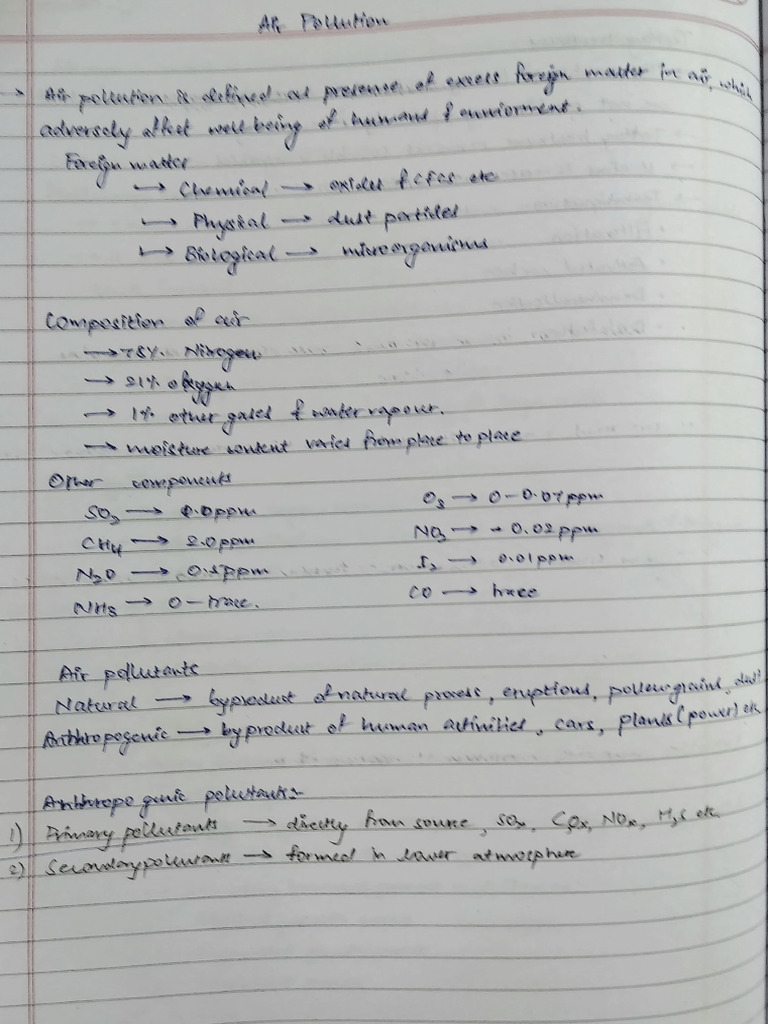 Air Pollution
→ Air pollution is defined as presence of excess foreign matter in air, which
adversely affect well being of humans & enviorment.
Foreign matter
↳ Chemical → oxides & CFCs etc
↳ Physical → dust particles
↳ Biological → microorganisms
Composition of air
→ 78% Nitrogen
→ 21% oxygen
→ 1% other gases & water vapour.
→ moisture content varies from place to place
Other components
SO2 → ppm O3 → 0-0.07ppm
CH4 → 2.0ppm NO2 → 0.02 ppm
N2O → ppm I2 → 0.01ppm
NH3 → 0-trace. CO → trace
Air pollutants
Natural → byproduct of natural process, eruptions, pollen grains, dust
Anthropogenic → byproduct of human activities, cars, plants (power) etc
Anthropogenic pollutants:-
1) Primary pollutants → directly from source, SOx, COx, NOx, H2S etc.
2) Secondary pollutants → formed in lower atmosphere